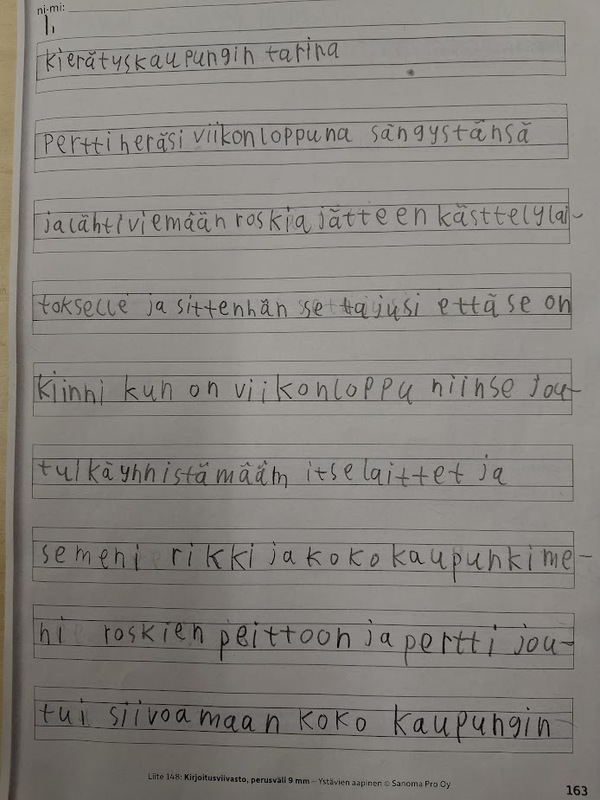 ni-mi:
kierätyskaupungin tarina
pertti heräsi viikonloppuna sängystänsä
ja lähti viemään roskia jätteen kästtelylai-
tokselle ja sittenhän se tajusi että se on
kiinni kun on viikonloppu niinse jou-
tui käynnistämään itse laittet ja
se meni rikki ja koko kaupunki me-
ni roskien peittoon ja pertti jou-
tui siivoamaan koko kaupungin
Liite 148: Kirjoitusviivasto, perusväli 9 mm – Ystävien aapinen © Sanoma Pro Oy
163